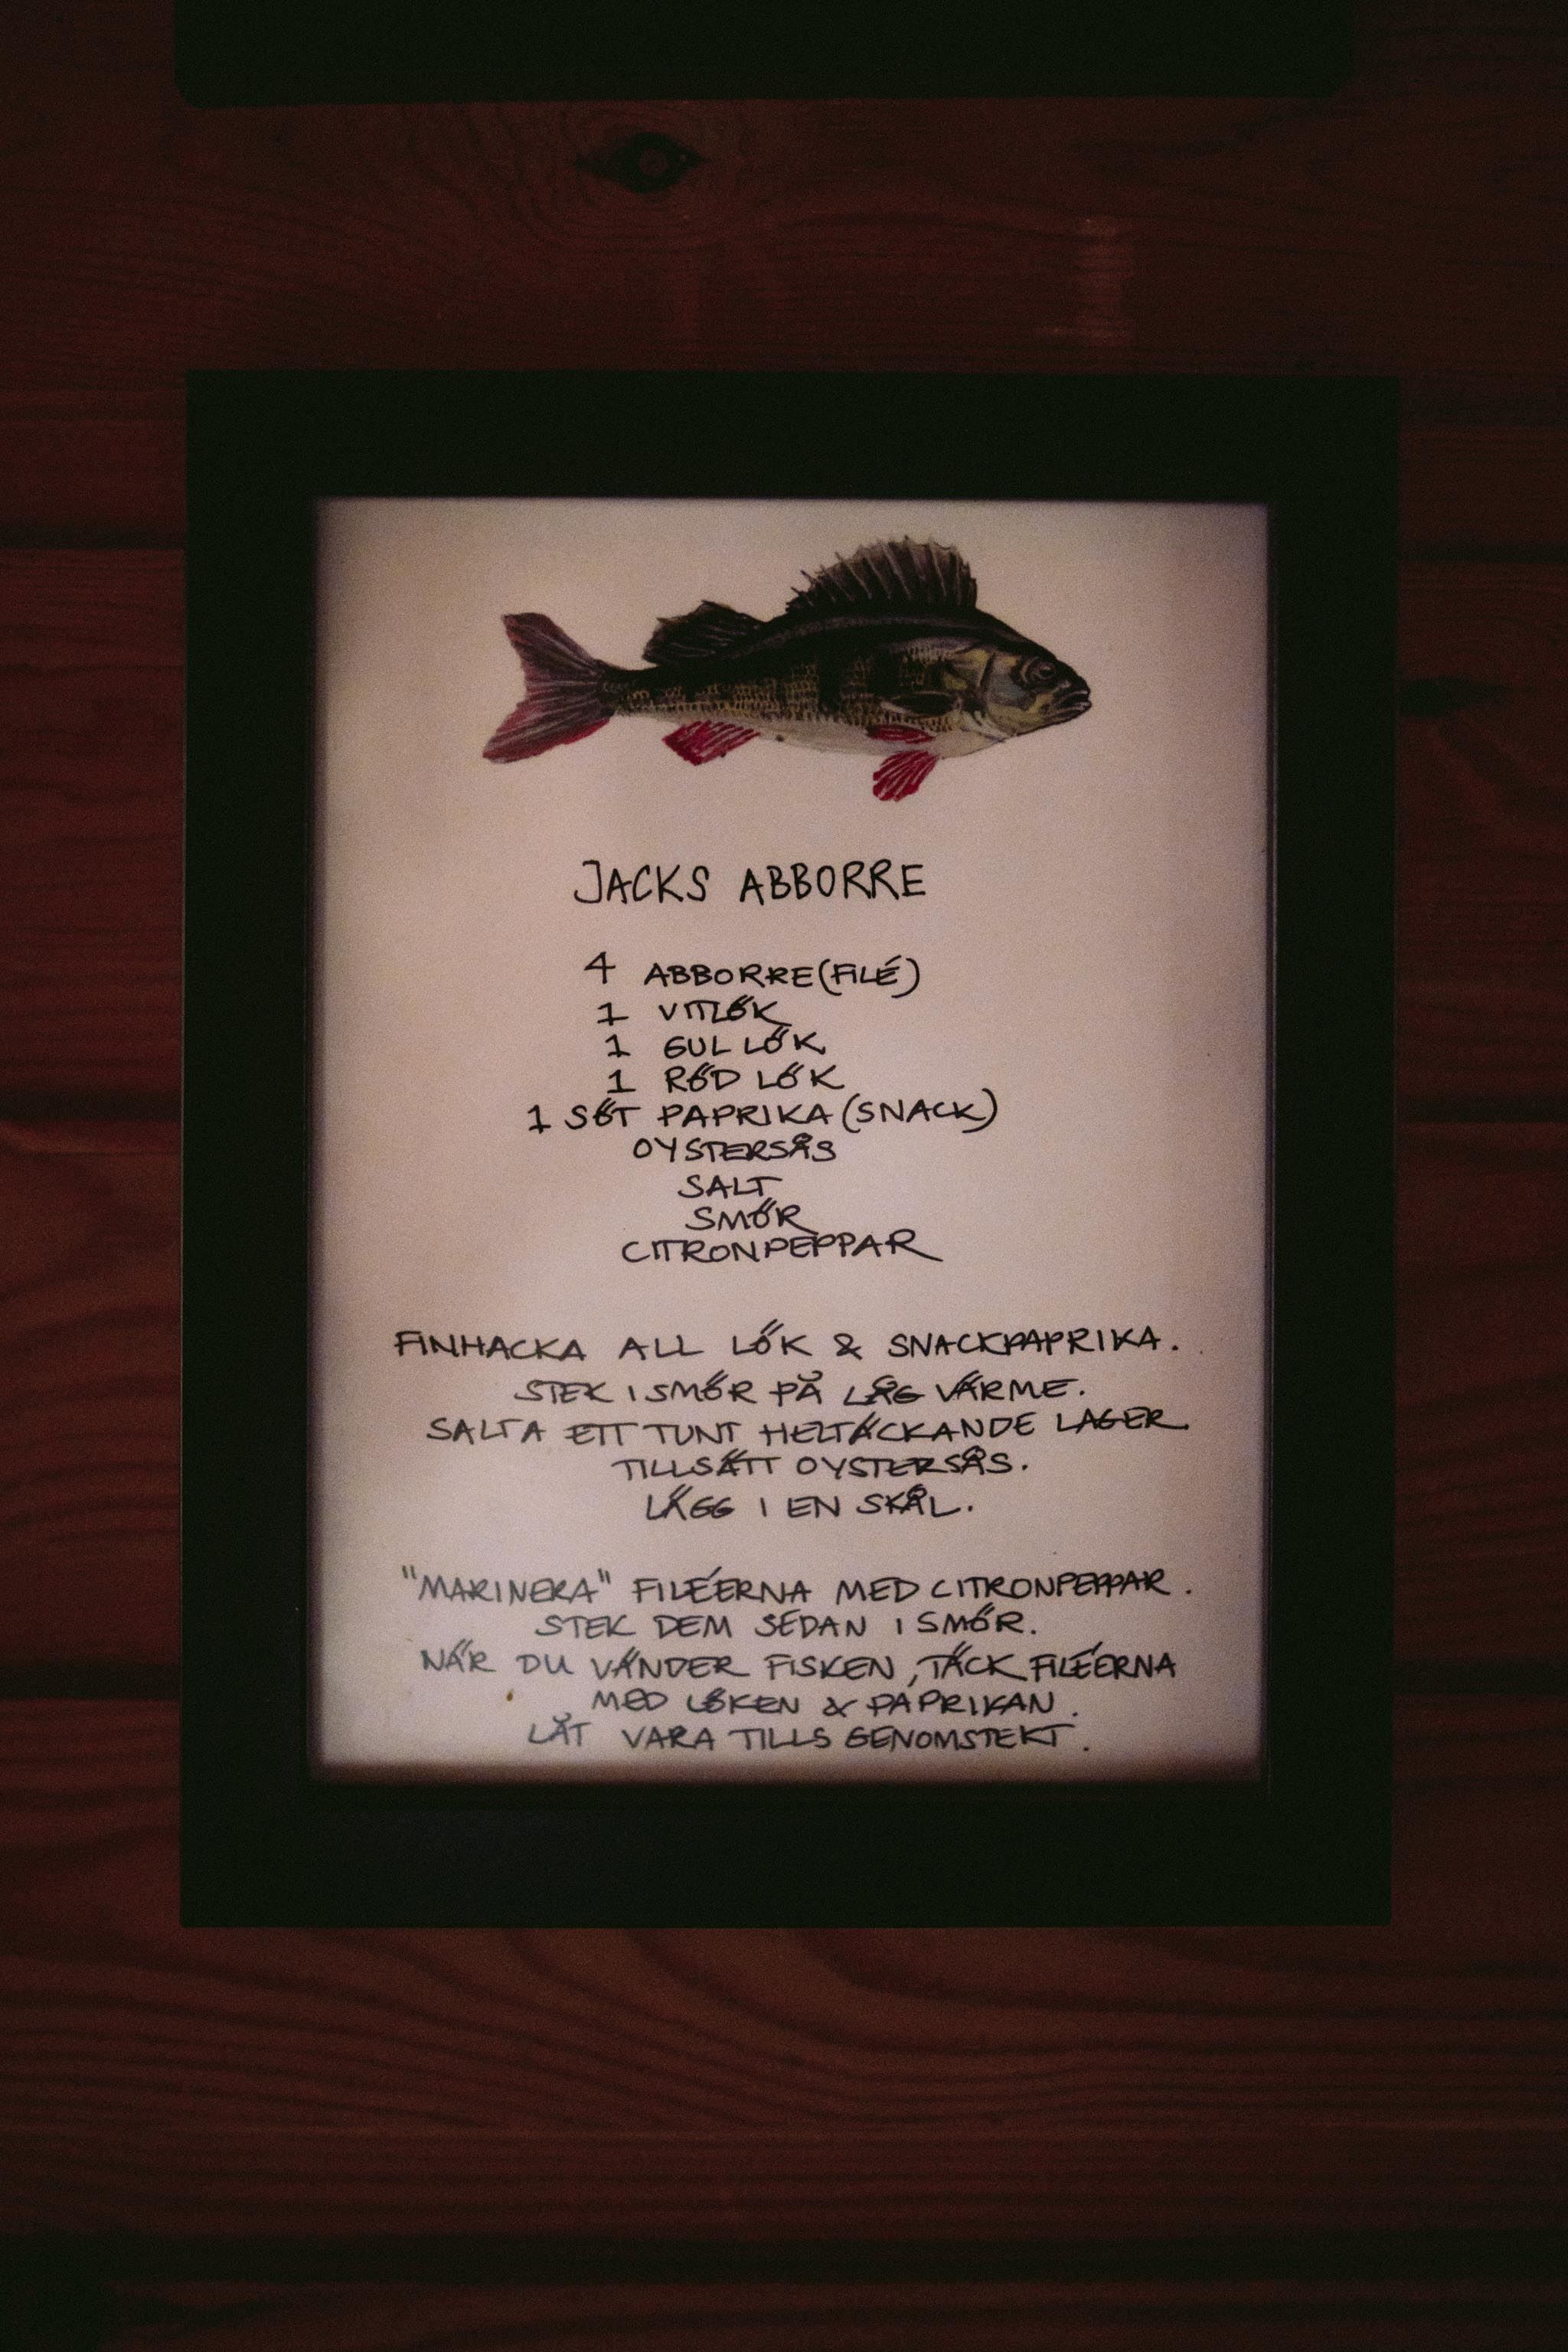 JACKS ABBORRE
4 ABBORRE (FILÉ)
1 VITLÖK
1 GUL LÖK
1 RÖD LÖK
1 SÖT PAPRIKA (SNACK)
OYSTERSÅS
SALT
SMÖR
CITRONPEPPAR
FINHACKA ALL LÖK & SNACKPAPRIKA.
STEK I SMÖR PÅ LÅG VÄRME.
SALTA ETT TUNT HELTÄCKANDE LAGER
TILLSÄTT OYSTERSÅS.
LÄGG I EN SKÅL.
"MARINERA" FILÉERNA MED CITRONPEPPAR.
STEK DEM SEDAN I SMÖR.
NÄR DU VÄNDER FISKEN, TÄCK FILÉERNA
MED LÖKEN & PAPRIKAN.
LÅT VARA TILLS GENOMSTEKT.